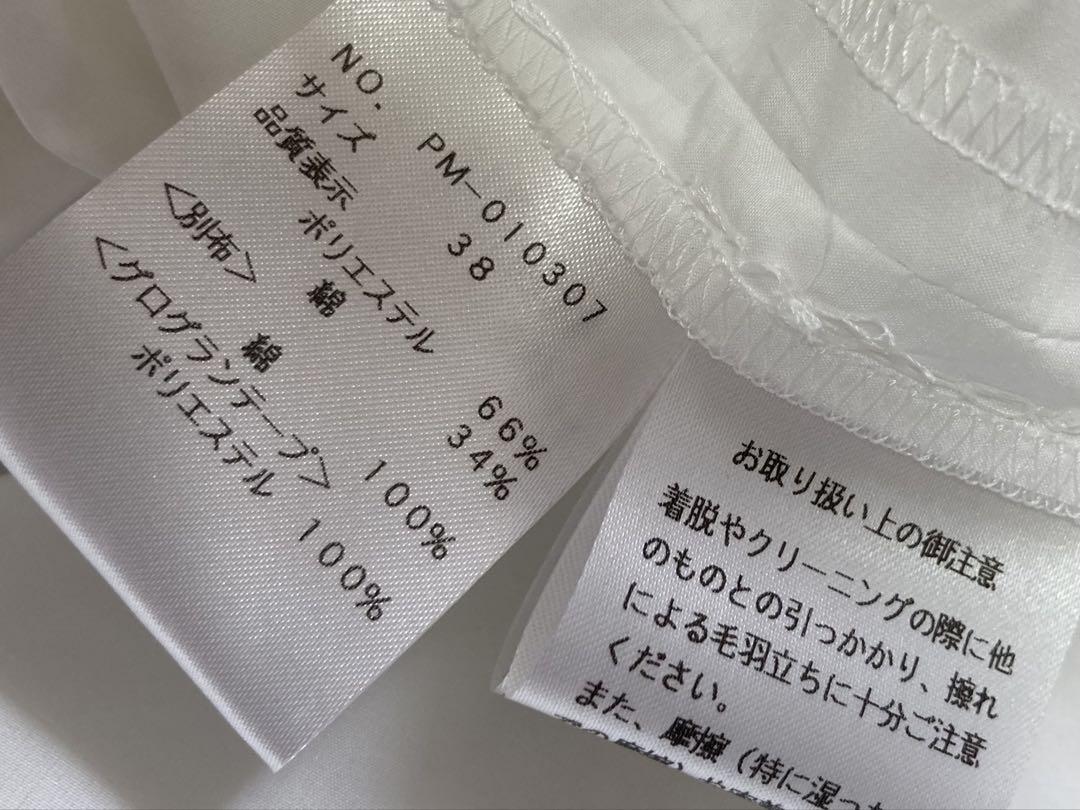 NO. PM-010307
サイズ 38
品質表示 ポリエステル 66%
綿 34%
<別布>
綿 100%
<グログランテープ>
ポリエステル 100%
お取り扱い上の御注意
着脱やクリーニングの際に他
のものとの引つかかり、擦れ
による毛羽立ちに十分ご注意
ください。
また、摩擦(特に湿っ